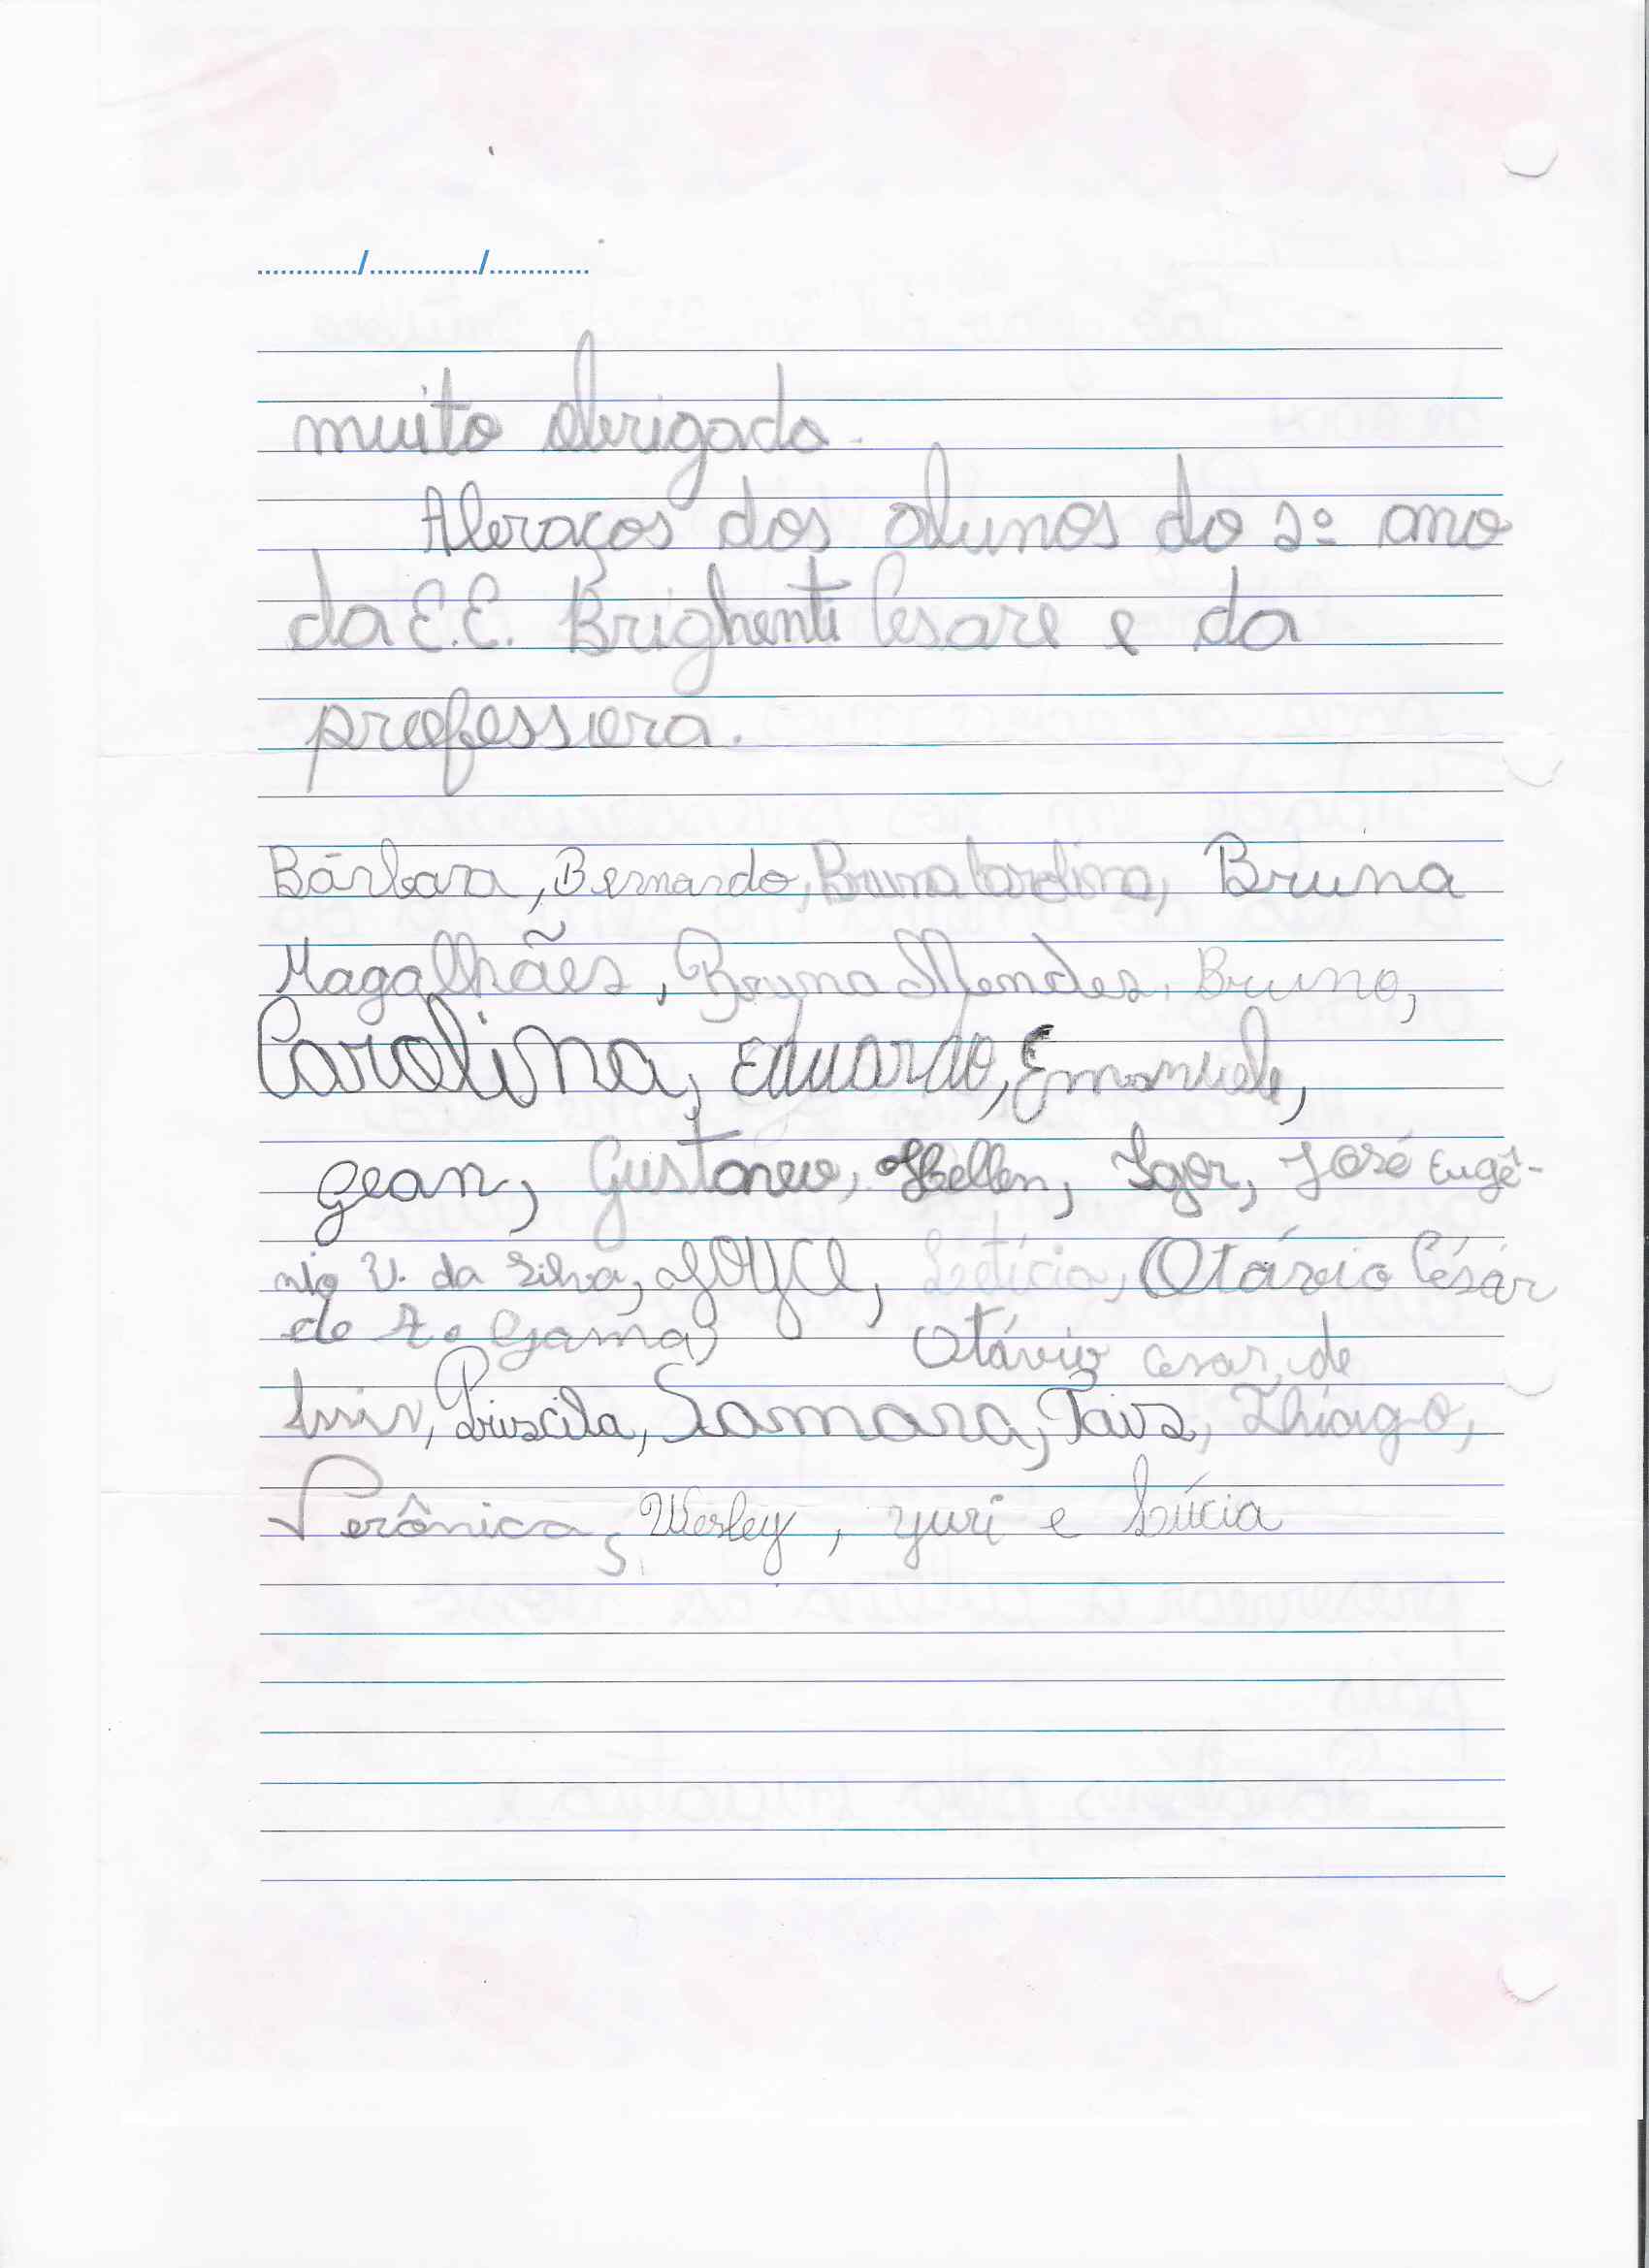 ............./............../.............
muito obrigado.
Abraços dos alunos do 2º ano
da E.E. Brighenti Cesare e da
professora.
Bárbara, Bernardo, Bruna Carolina, Bruna
Magalhães, Bruna Mendes, Bruno,
Carolina, Eduardo, Emanuele,
Gean, Gustavo, Hellen, Igor, José Eugê-
nio V. da Silva, JOYCE, Letícia, Otávio César
de A. Gama,
Otávio Cesar, de
Priscila, Samara, Taís, Thiago,
Verônica, Wesley, Yuri e Lúcia
S.